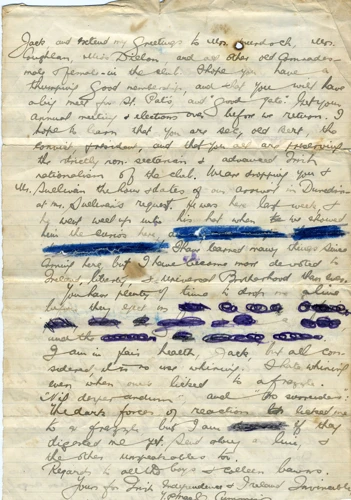 Jack and extend my greetings to Mrs. Murdoch, Mrs.
Coughlan, Miss Dillon, and all other old comrades
male & female in the club. I hope you have a
thumping good membership, and that you will have
a big meet for St. Pat's, and good gate. Get your
annual meeting & elections over before we return. I
hope to learn that you are sec, old Bert, the
convict president, and that you are preserving
the strictly non-sectarian & advanced Irish
nationalism of the club. We are dropping you &
Mrs. Sullivan the hour & date of our arrival in Dunedin
at Mr. Sullivan's request. He was here last week, &
he went well up into his hat when he
him the
I have learned many things since
coming here, but I have become more devoted to
Ireland, liberty, & universal Brotherhood than ever.
You have plenty of time to drop me a line
here, they
under the
I am in fair health, Jack, but all con-
sidered it's no use whining. I hate whining
even when one's licked to a frazzle.
Nil desperandum and no surrender.
The dark forces of reaction licked me
to a frazzle but I am if they
digested me yet. Send along a line, &
the other unspeakables too.
Regards to all the boys & colleen bawns.
Yours for Irish Independence & Ireland Invincible